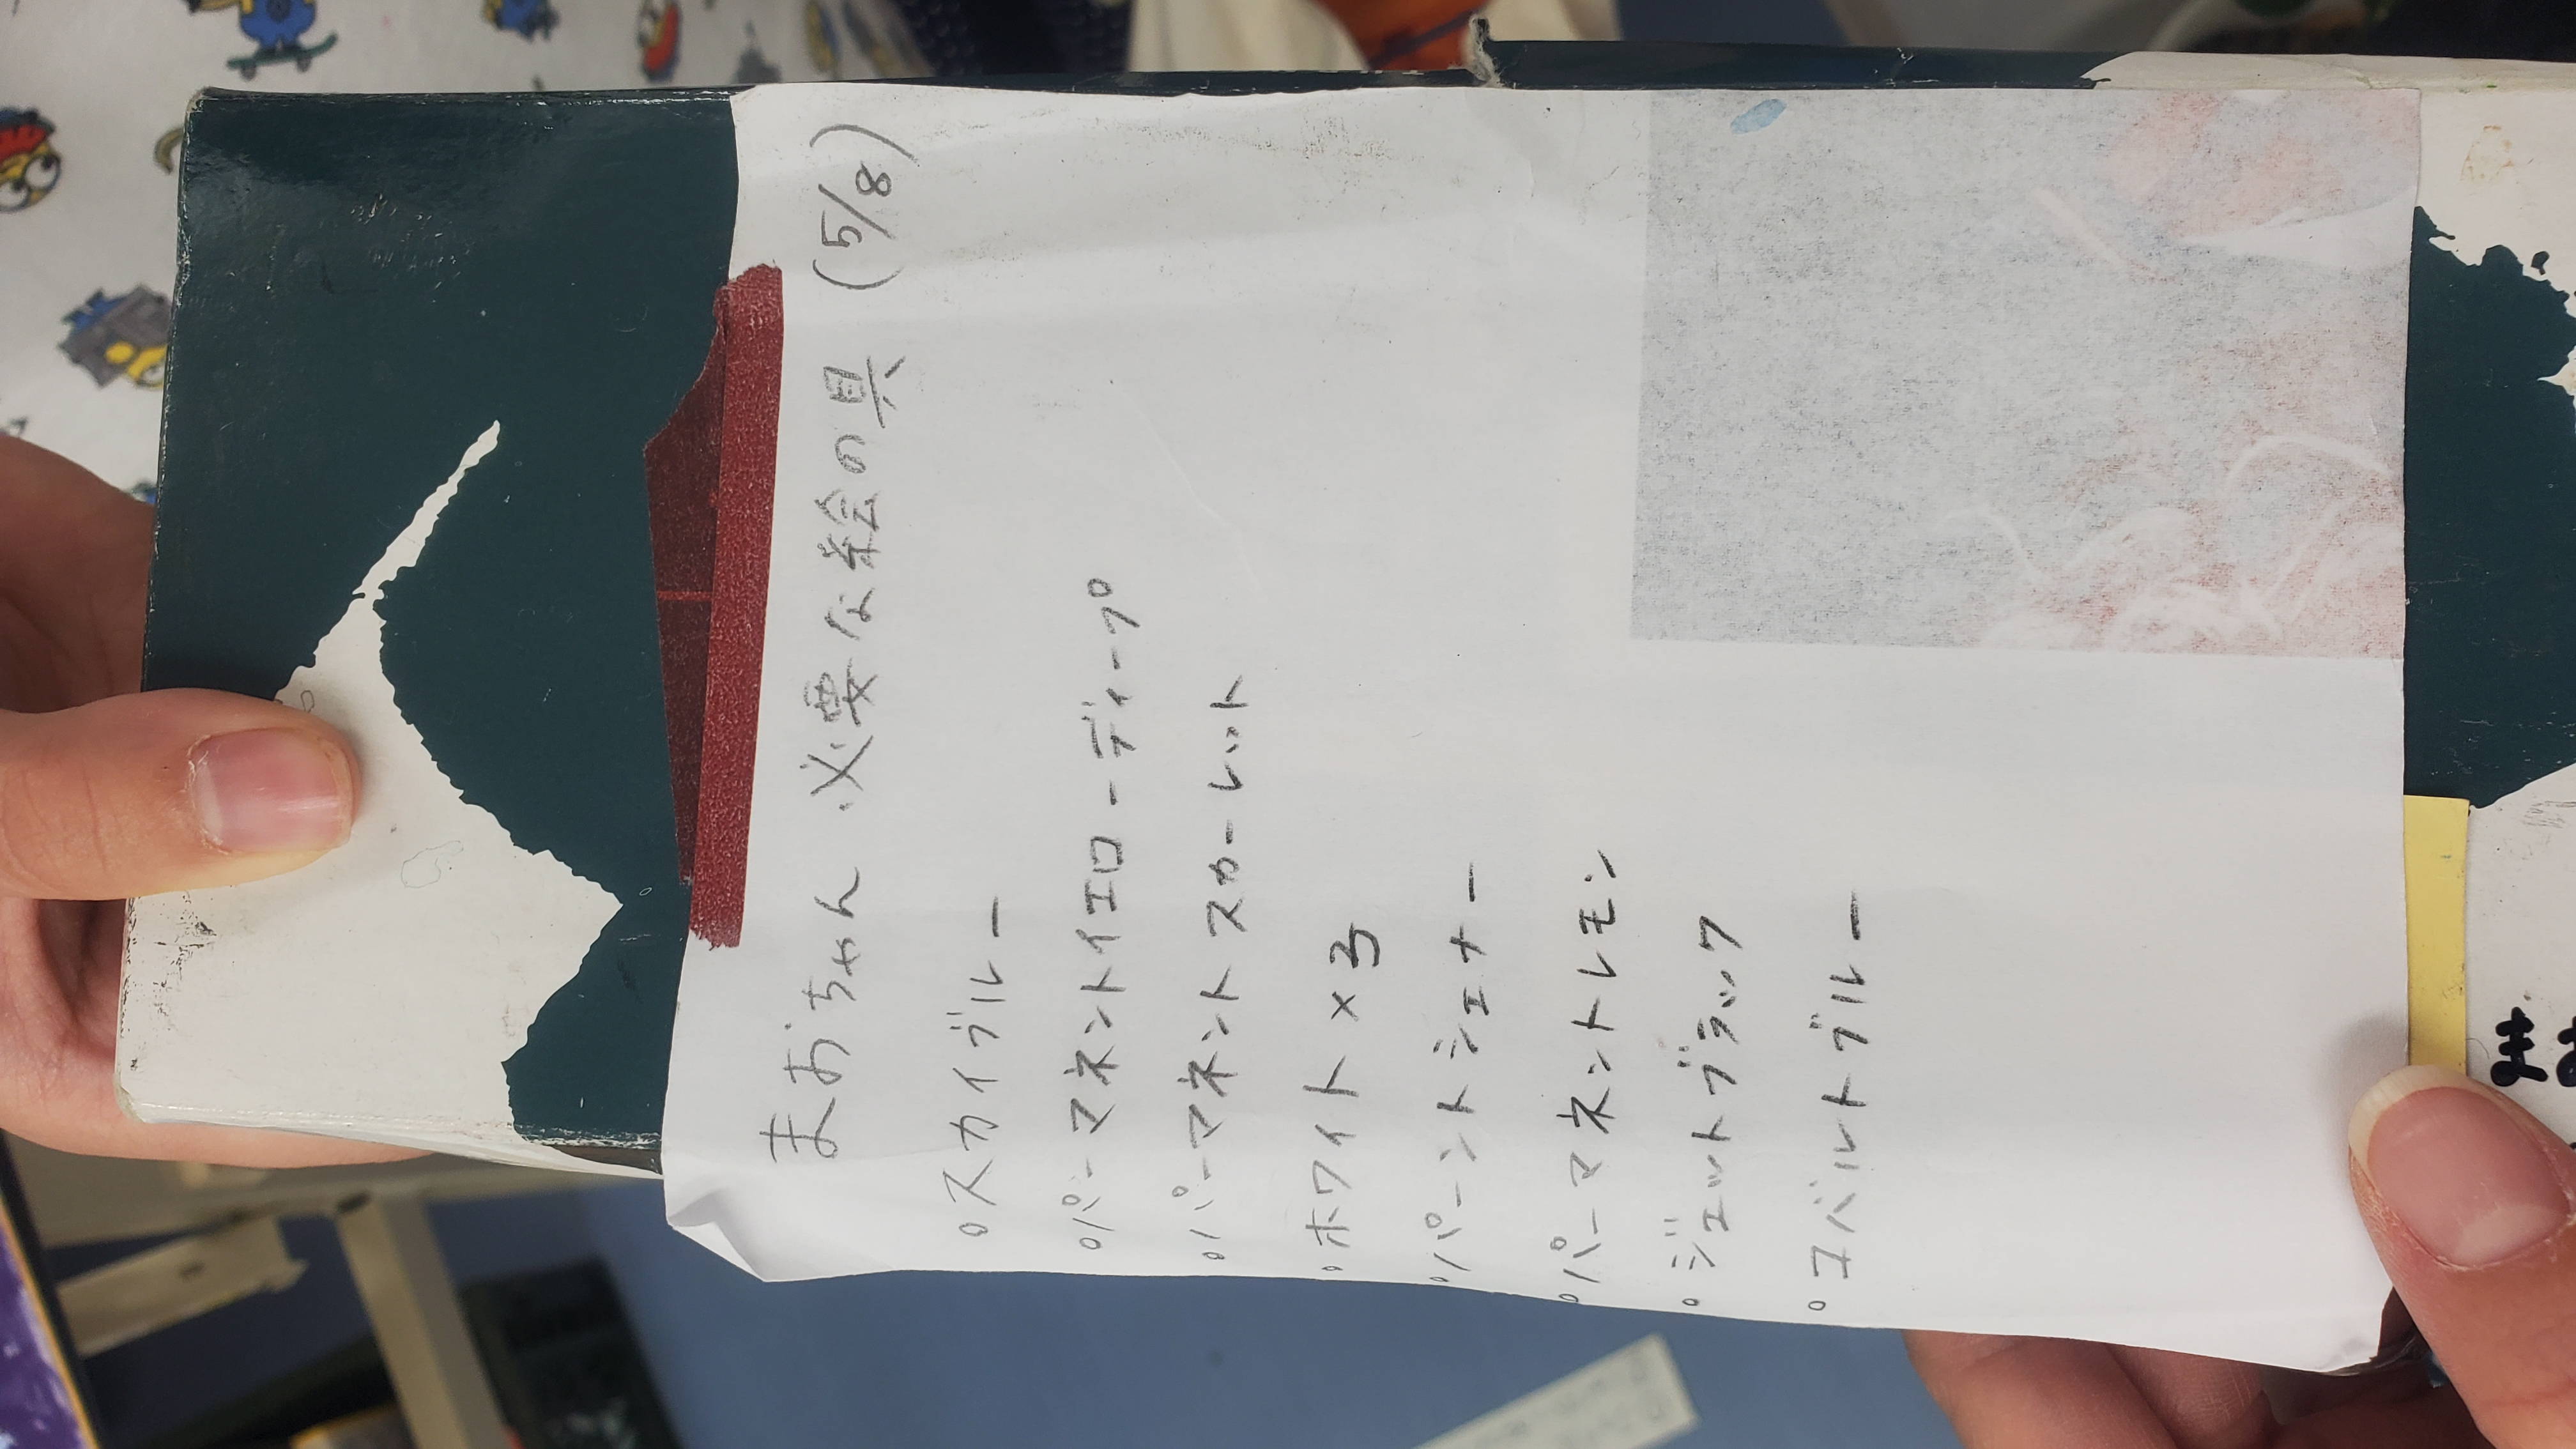 まおちゃん 必要な絵の具 (5/8)
○スカイブルー
○パーマネントイエローディープ
○パーマネントスカーレット
○ホワイト×3
○バーントシェナー
○パーマネントレモン
○ジェットブラック
○コバルトブルー